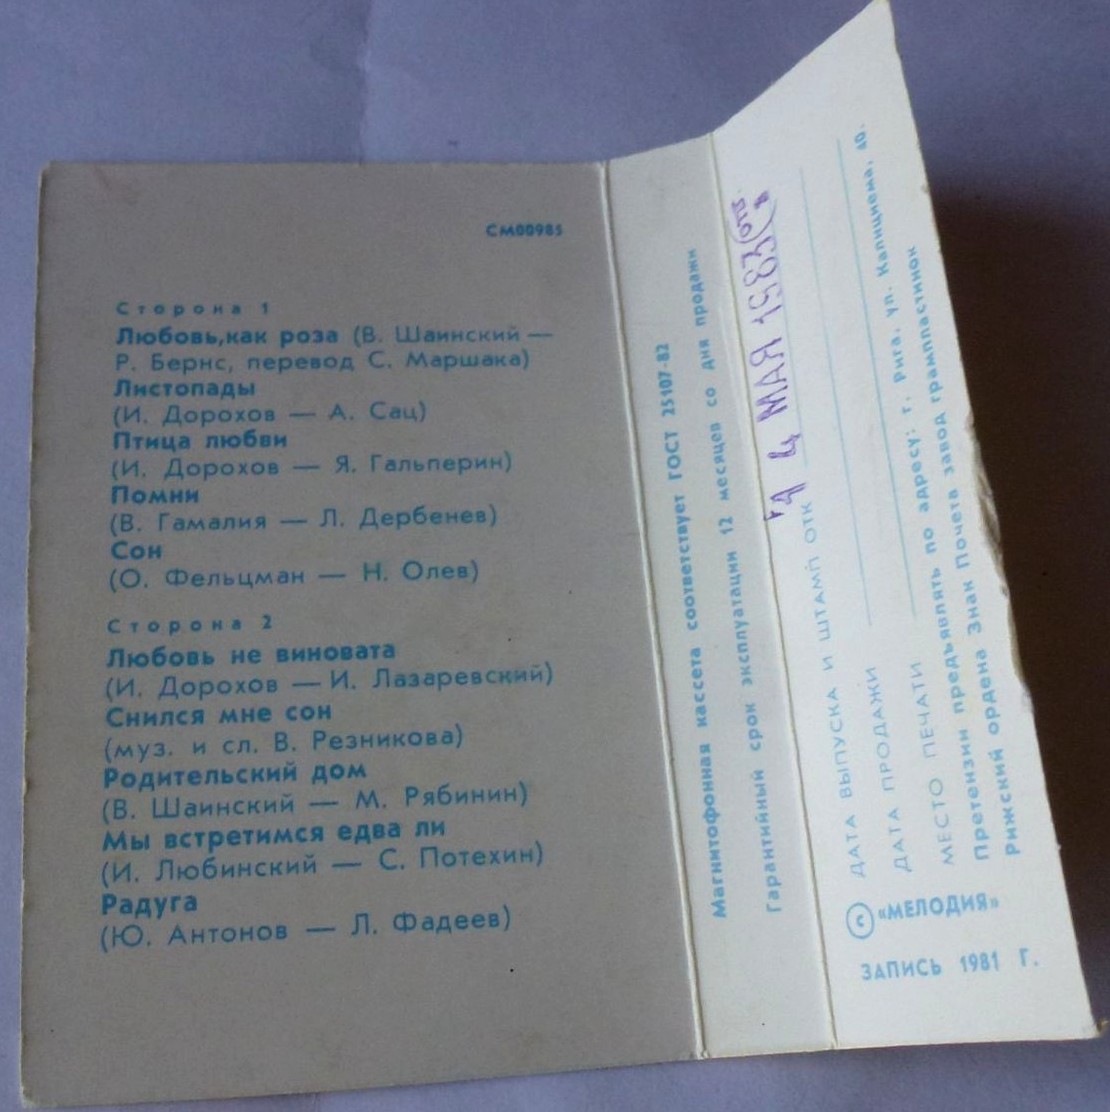 СМ00985
Сторона 1
Любовь,как роза (В. Шаинский —
Р. Бернс, перевод С. Маршака)
Листопады
(И. Дорохов — А. Сац)
Птица любви
(И. Дорохов — Я. Гальперин)
Помни
(В. Гамалия — Л. Дербенев)
Сон
(О. Фельцман — Н. Олев)
Сторона 2
Любовь не виновата
(И. Дорохов — И. Лазаревский)
Снился мне сон
(муз. и сл. В. Резникова)
Родительский дом
(В. Шаинский — М. Рябинин)
Мы встретимся едва ли
(И. Любинский — С. Потехин)
Радуга
(Ю. Антонов — Л. Фадеев)
Магнитофонная кассета соответствует ГОСТ 25107-82
Гарантийный срок эксплуатации 12 месяцев со дня продажи
МАЯ 1983
ДАТА ВЫПУСКА И ШТАМП ОТК
ДАТА ПРОДАЖИ
МЕСТО ПЕЧАТИ
Претензии предъявлять по адресу: г. Рига, ул. Капнциема, 40.
Рижский ордена Знак Почета завод грампластинок
© «МЕЛОДИЯ»
ЗАПИСЬ 1981 Г.